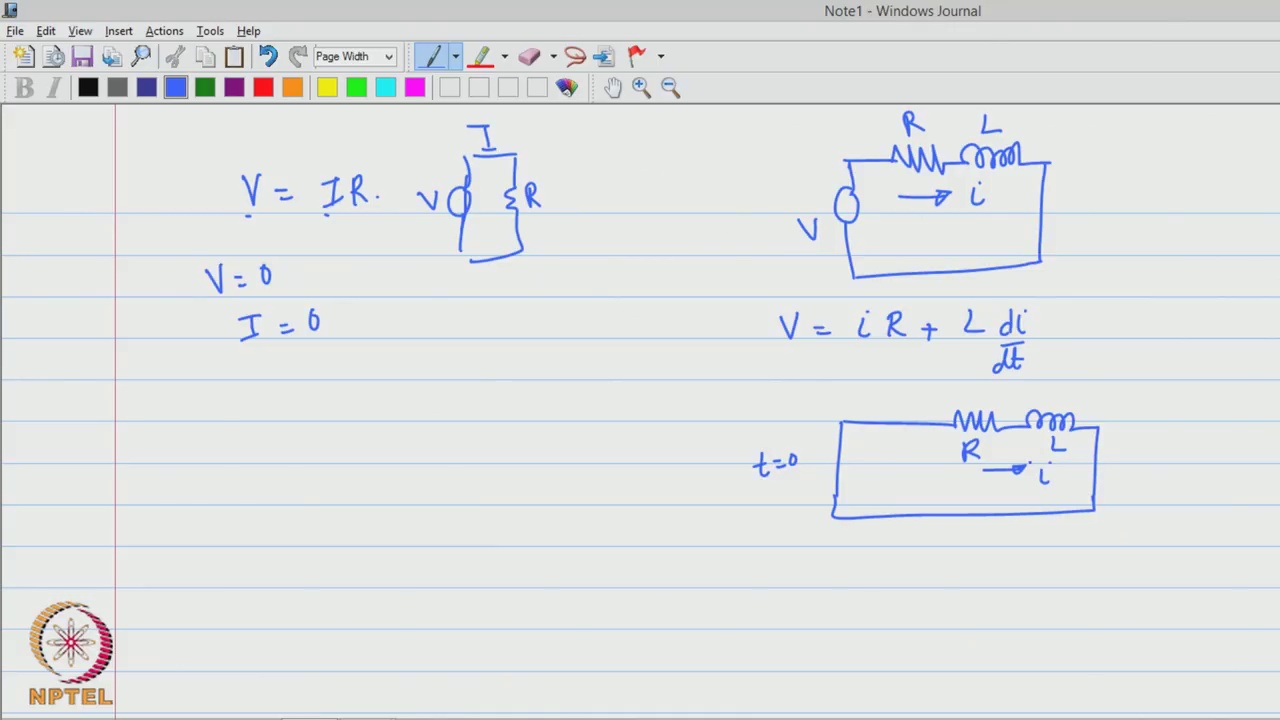 Note1 - Windows Journal
File Edit View Insert Actions Tools Help
Page Width
B I
I
V = IR.
V
R
V = 0
I = 0
R L
i
V
V = i R + L di/dt
t=0
R L
i
NPTEL